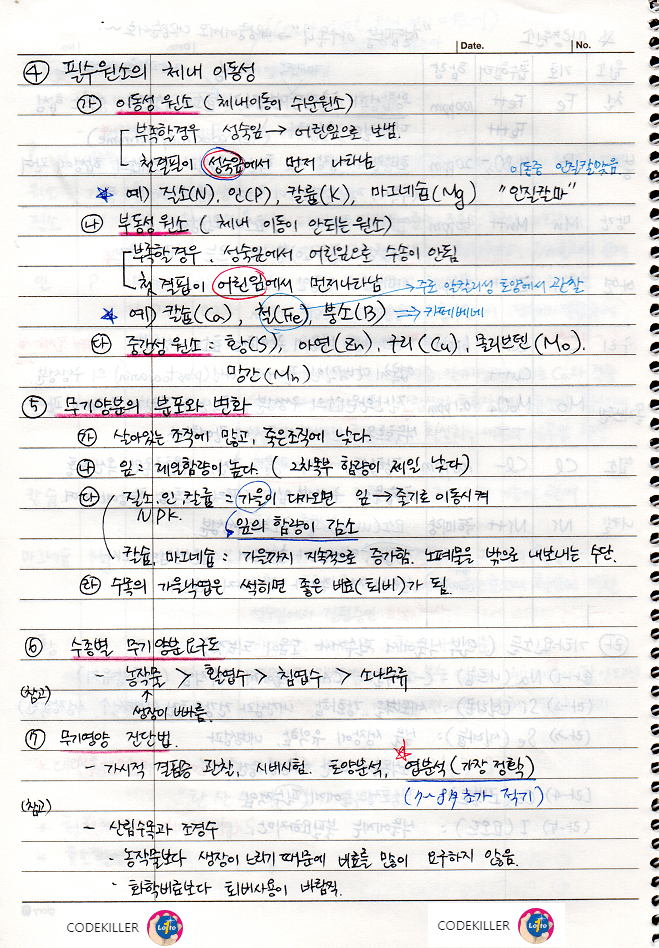 Date. No.
④ 필수원소의 체내 이동성
㉮ 이동성 원소 ( 체내이동이 쉬운원소)
부족할경우 성숙잎 → 어린잎으로 보냄.
첫결핍이 성숙잎에서 먼저 나타남
이동중 인질잘맞음.
★ 예) 질소(N), 인(P), 칼륨(K), 마그네슘(Mg) "인질칼마"
㉯ 부동성 원소 ( 체내 이동이 안되는 원소)
부족할경우. 성숙잎에서 어린잎으로 수송이 안됨
첫 결핍이 어린잎에서 먼저나타남 → 주로 알칼리성 토양에서 관찰
★ 예) 칼슘(Ca), 철(Fe), 붕소(B) ⇒ 카페베네
㉰ 중간성 원소 : 황(S), 아연(Zn), 구리(Cu), 몰리브덴(Mo).
망간(Mn)
⑤ 무기양분의 분포와 변화
㉮ 살아있는 조직에 많고, 죽은조직에 낮다.
㉯ 잎 : 제의함량이 높다. ( 2차목부 함량이 제일 낮다)
㉰ 질소, 인, 칼륨 : 가을이 다가오면 잎 → 줄기로 이동시켜
NPK. 잎의 함량이 감소
칼슘, 마그네슘 : 가을까지 지속적으로 증가함. 노폐물을 밖으로 내보내는 수단.
㉱ 수목의 가을낙엽은 썩히면 좋은 비료(퇴비)가 됨.
⑥ 수종별 무기양분요구도
- 농작물 > 활엽수 > 침엽수 > 소나무류
(참고) ↑
생장이 빠름.
⑦ 무기영양 진단법.
- 가시적 결핍증 관찰, 시비시험. 토양분석, ☆ 엽분석(가장 정확)
(참고) (7~8月초가 적기)
- 산림수목과 조경수
- 농작물보다 생장이 느리기 때문에 비료를 많이 요구하지 않음.
- 화학비료보다 퇴비사용이 바람직.
CODEKILLER Lotto CODEKILLER Lotto